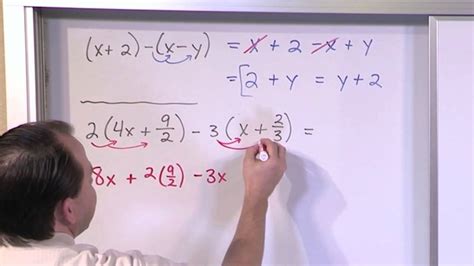 (x+2)-(x-y) = x + 2 - x + y
= [2 + y = y + 2
2(4x + 9/2) - 3(x + 2/3) =
8x + 2(9/2) - 3x